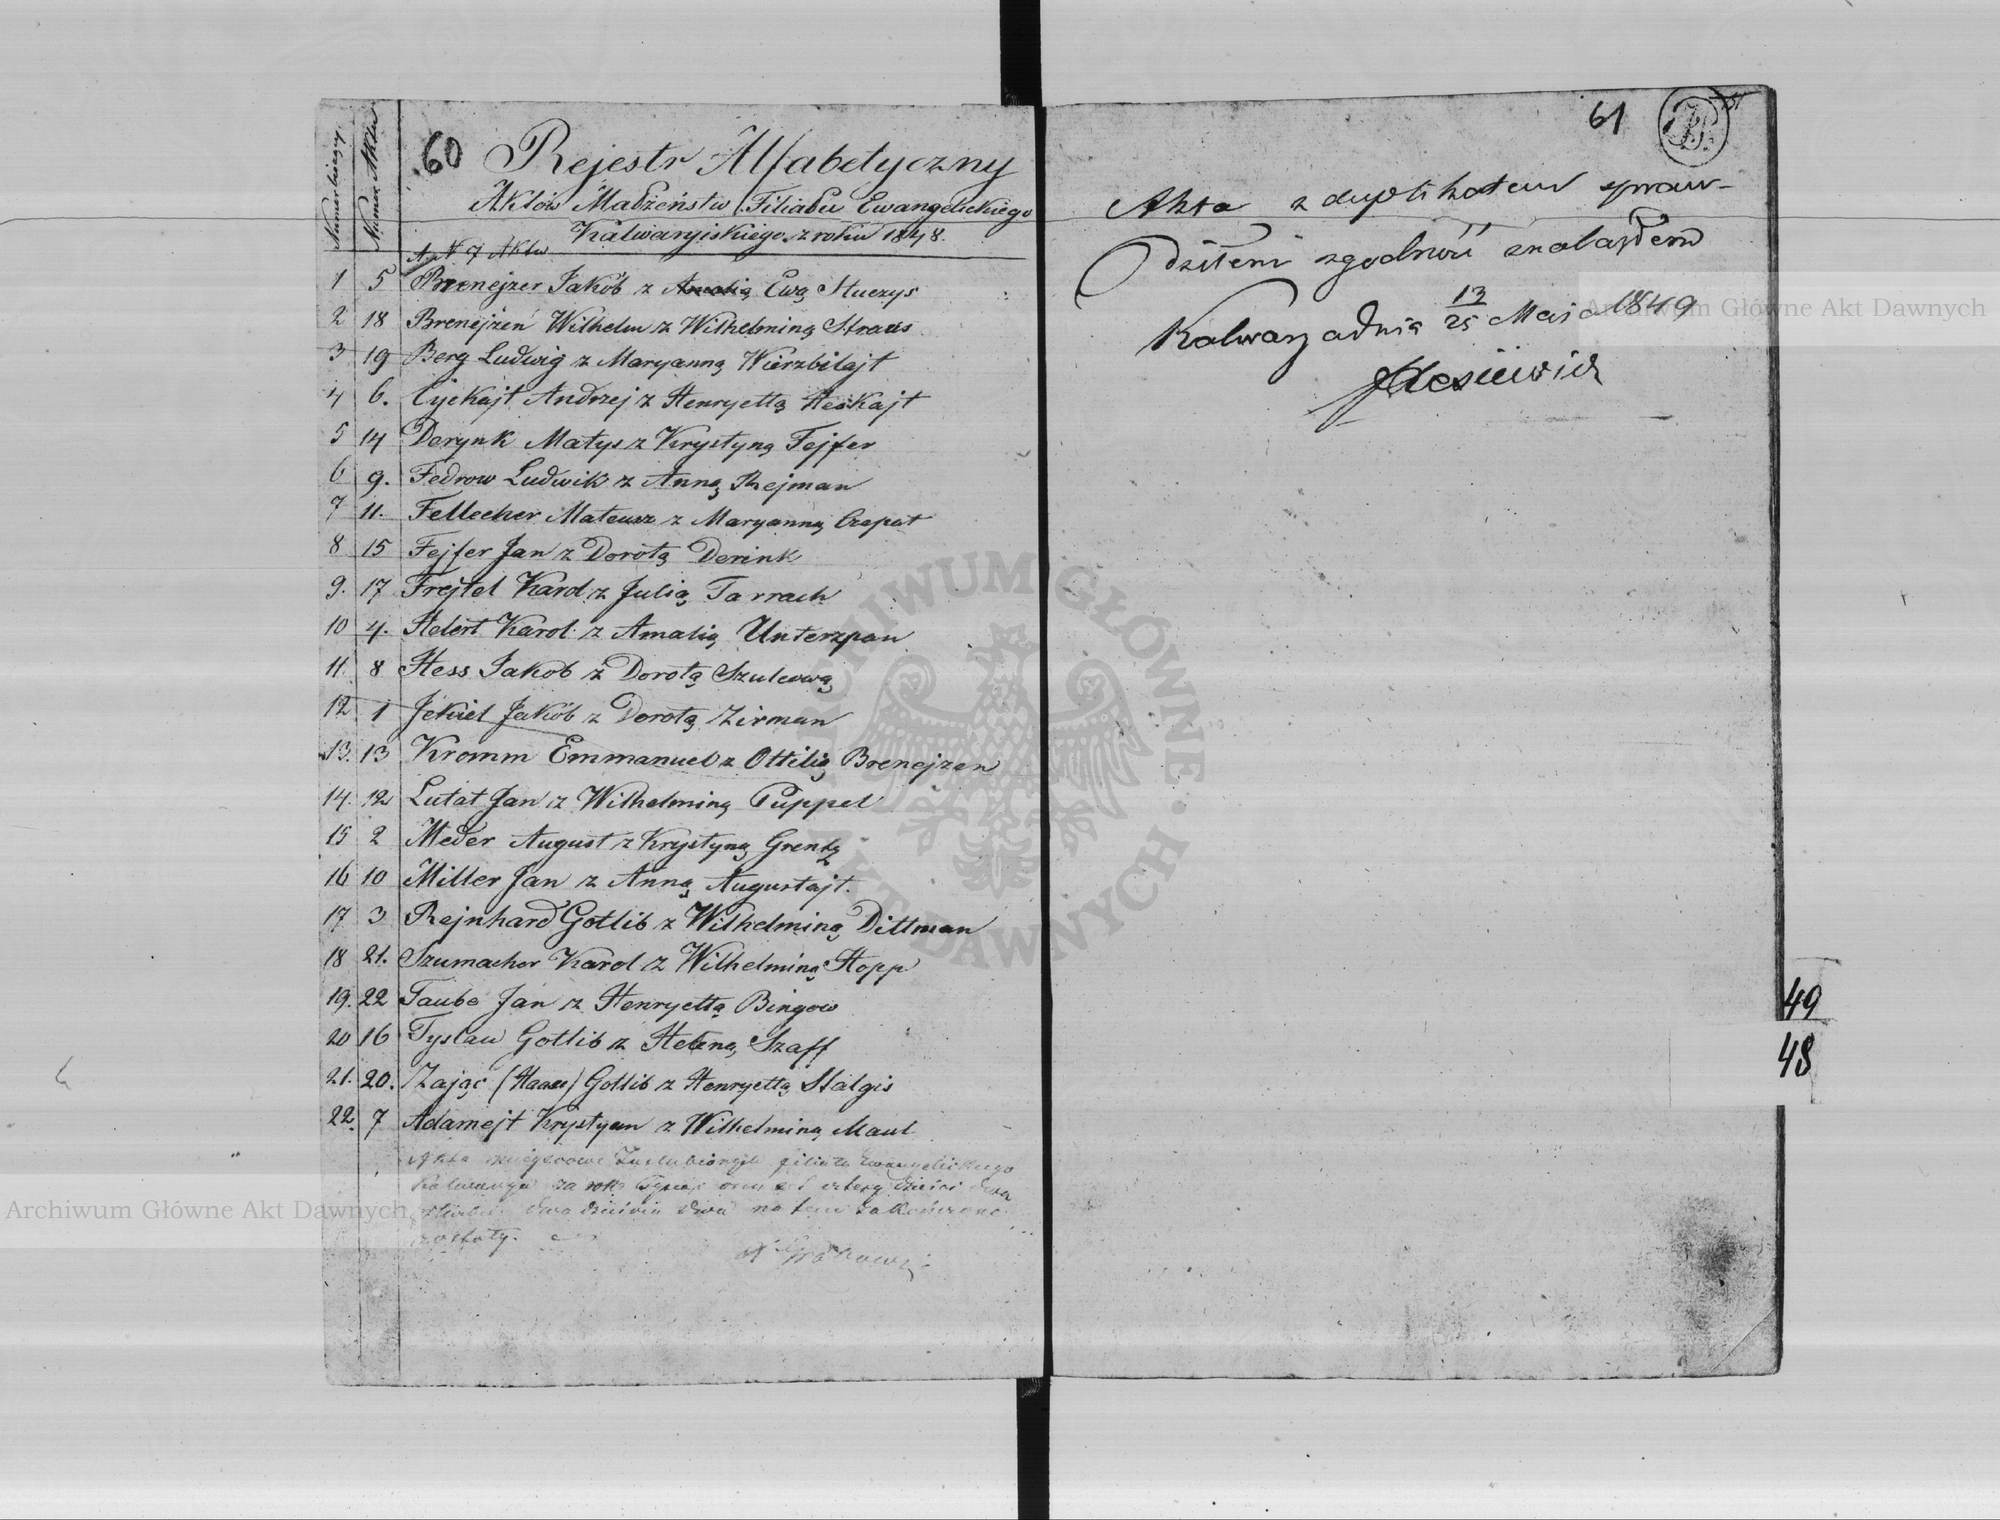 60 Rejestr Alfabetyczny
Aktów Małżeństw Filiału Ewangelickiego
Kalwaryiskiego z roku 1848.
Numer bieżący
Numer Aktu
A N 7 Aktu
1 5 Brenejzer Jakób z Amalią Ewą Stuczys
2 18 Brenejzen Wilhelm z Wilhelminą Straus
3 19 Berg Ludwig z Maryanną Wierzbilajt
4 6. Cyckajt Andrzej z Henryettą Heskajt
5 14 Derynk Matys z Krystyną Fejfer
6 9. Fedrow Ludwik z Anną Rejman
7 11. Fellecher Mateusz z Maryanną Czepat
8 15 Fejfer Jan z Dorotą Derink
9. 17 Frejtel Karol z Julią Tarrach
10 4. Hedert Karol z Amalią Unterzpan
11. 8 Hess Jakob z Dorotą Szulcową
12 1 Jekiel Jakób z Dorotą Zirman
13. 13 Kromm Emmanuel z Ottilią Brenejzen
14. 12 Lutat Jan z Wilhelminą Puppel
15 2 Meder August z Krystyną Grentz
16 10 Miller Jan z Anną Augustajt.
17 3 Rejnhard Gotlib z Wilhelminą Dittman
18 21. Szumacher Karol z Wilhelminą Hopp
19. 22 Taube Jan z Henryettą Bingow
20 16 Tyslau Gotlib z Heleną Szaff
21. 20. Zając (Haase) Gotlib z Henryettą Stalgis
22. 7 Adamejt Krystyan z Wilhelminą Maul
Akta Zaślubionych filiału Ewangelickiego
za rok Tysiąc ośmset czterdzieści
dwadzieścia dwa na tem zakończone
zostały.
61
Akta z duplikatem spraw-
dziłem i zgodność znalazłem
Kalwarya dnia 13/25 Maja 1849
49
48
Archiwum Główne Akt Dawnych
Archiwum Główne Akt Dawnych
ARCHIWUM GŁÓWNE · AKT DAWNYCH ·